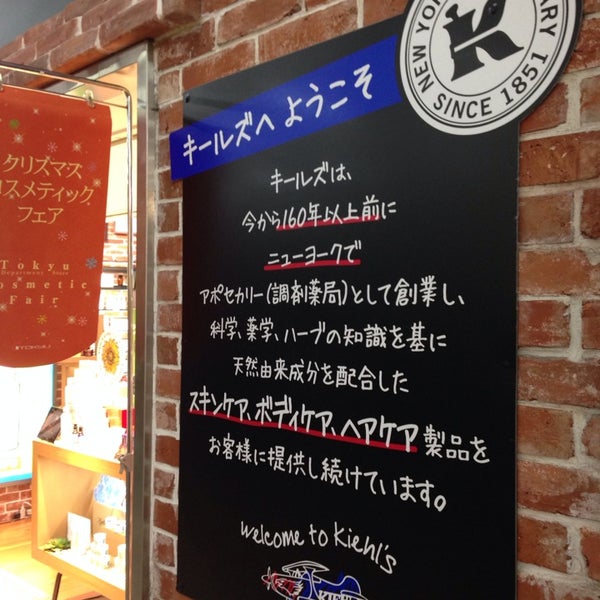 クリズマス
コスメティック
フェア
Tokyu
Department Store
Cosmetic
Fair
NEW YO
ARY
SINCE 1851
キールズへようこそ
キールズは、
今から160年以上前に
ニューヨークで
アポセカリー(調剤薬局)として創業し、
科学、薬学、ハーブの知識を基に
天然由来成分を配合した
スキンケア、ボディケア、ヘアケア製品を
お客様に提供し続けています。
welcome to Kiehl's